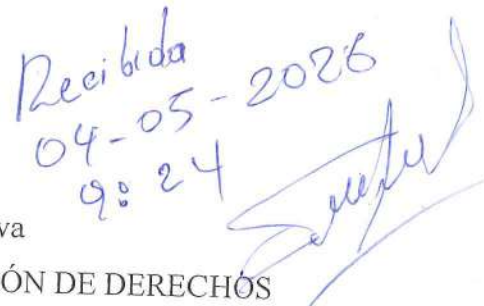 Recibida
04-05-2026
9:24
va
ÓN DE DERECHOS